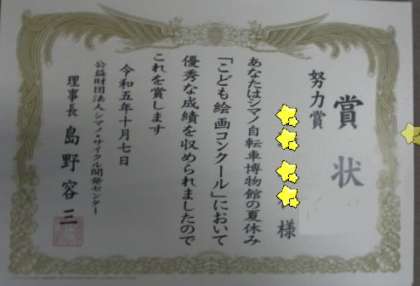 賞状
努力賞
様
あなたはシマノ自転車博物館の夏休み
「こども絵画コンクール」において
優秀な成績を収められましたので
これを賞します
令和五年十月七日
公益財団法人シマノ・サイクル開発センター
理事長 島野容三